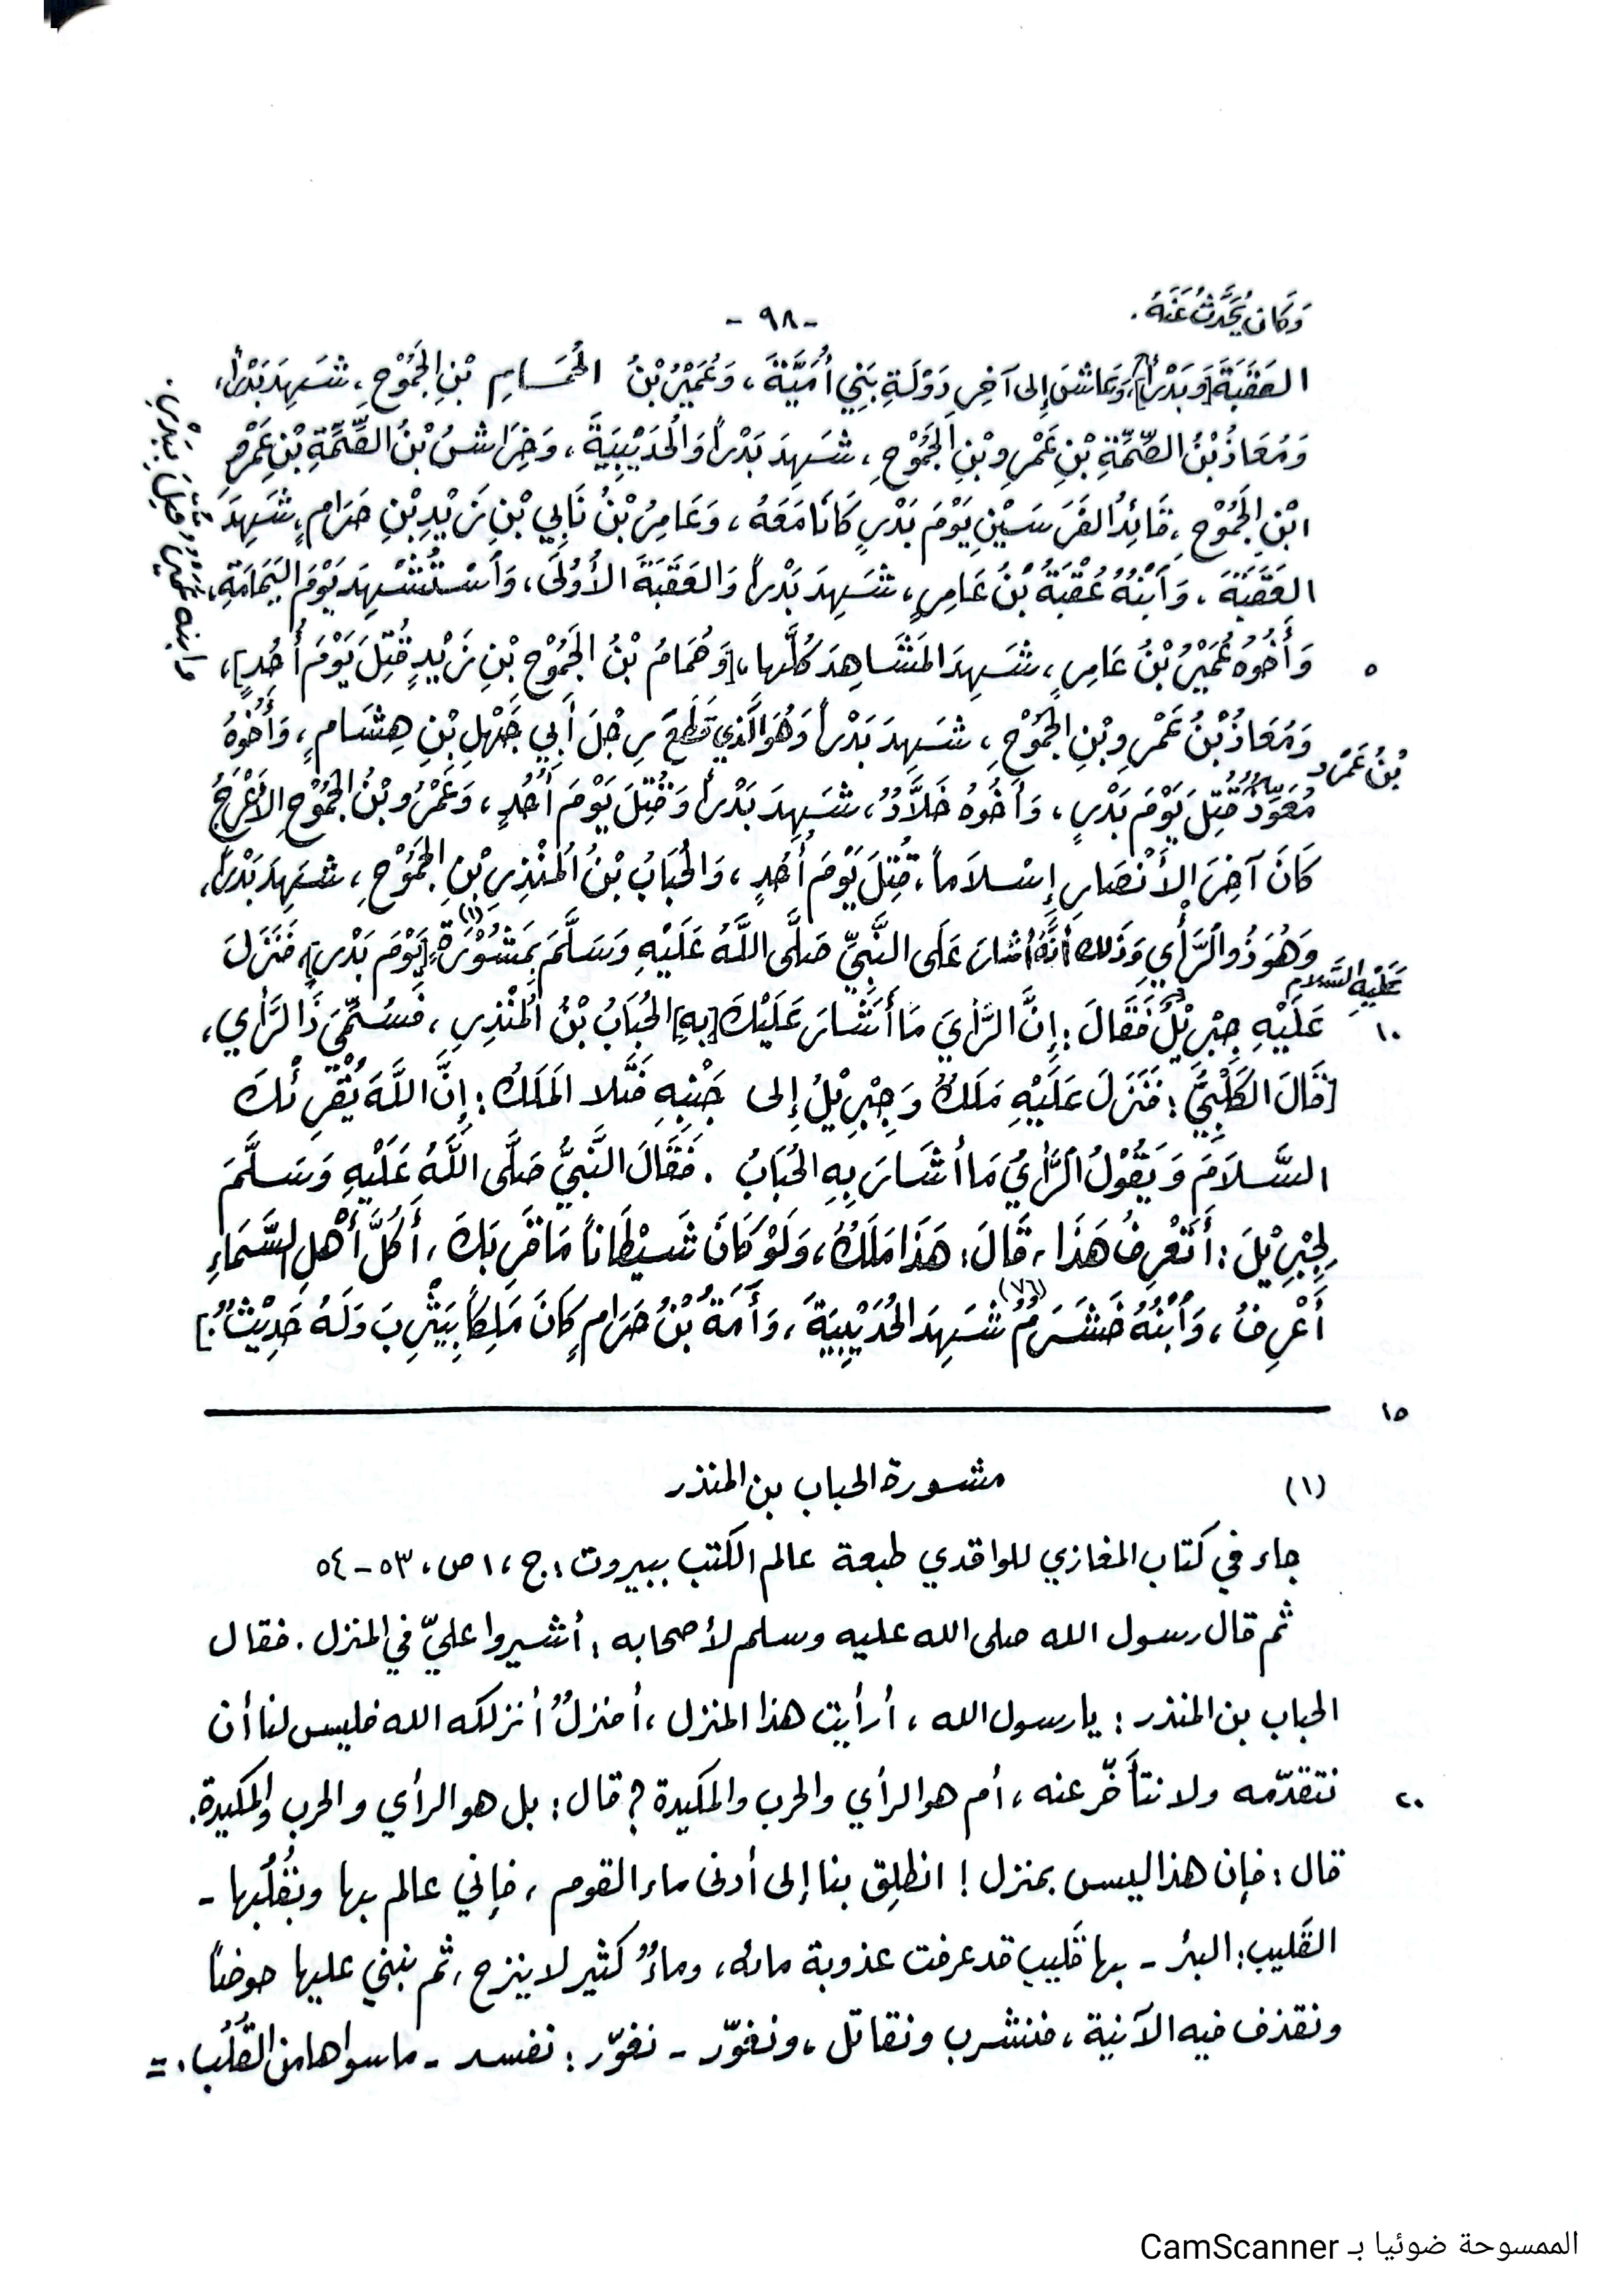 وَكَانَ يُحَدَّثُ عَنْهُ.
-٩٨-
العَقَبَةَ [وَبَدْراً]، وَعَاشَ إِلى آخِرِ دَوْلَةِ بَنِي أُمَيَّةَ، وَعُمَيْرُ بْنُ الحُمَامِ بْنِ الجَمُوْحِ، شَهِدَ بَدْراً،
وَمُعَاذُ بْنُ الصِّمَّةِ بْنِ عَمْرِو بْنِ الجَمُوْحِ، شَهِدَ بَدْراً وَالحُدَيْبِيَةَ، وَخِرَاشُ بْنُ الصِّمَّةِ بْنِ عَمْرِو
ابْنِ الجَمُوْحِ، قَائِدُ الفَرَسَيْنِ يَوْمَ بَدْرٍ كَانَا مَعَهُ، وَعَامِرُ بْنُ نَابِي بْنِ زَيْدِ بْنِ حَرَامٍ، شَهِدَ
العَقَبَةَ، وَابْنُهُ عُقْبَةُ بْنُ عَامِرٍ، شَهِدَ بَدْراً وَالعَقَبَةَ الأُوْلَى، وَاسْتُشْهِدَ يَوْمَ اليَمَامَةِ،
٥ وَأَخُوْهُ عُمَيْرُ بْنُ عَامِرٍ، شَهِدَ المَشَاهِدَ كُلَّها، [وَهُمَامُ بْنُ الجَمُوْحِ بْنِ زَيْدٍ قُتِلَ يَوْمَ أُحُدٍ]،
وَمُعَاذُ بْنُ عَمْرِو بْنِ الجَمُوْحِ، شَهِدَ بَدْراً وَهُوَ الَّذِي قَطَعَ رِجْلَ أَبِي جَهْلِ بْنِ هِشَامٍ، وَأَخُوْهُ
بْنُ عَمْرٍو
مُعَوِّذٌ قُتِلَ يَوْمَ بَدْرٍ، وَأَخُوْهُ خَلَّادٌ، شَهِدَ بَدْراً وَقُتِلَ يَوْمَ أُحُدٍ، وَعَمْرُو بْنُ الجَمُوْحِ الأَعْرَجُ
كَانَ آخِرَ الأَنْصَارِ إِسْلَاماً، قُتِلَ يَوْمَ أُحُدٍ، وَالحُبَابُ بْنُ المُنْذِرِ بْنِ الجَمُوْحِ، شَهِدَ بَدْراً،
وَهُوَ ذُو الرَّأْيِ وَذَلِكَ أَنَّهُ أَشَارَ عَلَى النَّبِيِّ صَلَّى اللَّهُ عَلَيْهِ وَسَلَّمَ بِمَشُوْرَةٍ (١) [يَوْمَ بَدْرٍ]، فَنَزَلَ
عَلَيْهِ السَّلام
١٠ عَلَيْهِ جِبْرِيْلُ فَقَالَ: إِنَّ الرَّأْيَ مَا أَشَارَ عَلَيْكَ [بِهِ] الحُبَابُ بْنُ المُنْذِرِ، فَسُمِّيَ ذَا الرَّأْيِ،
[قَالَ الكَلْبِيُّ: فَنَزَلَ عَلَيْهِ مَلَكٌ وَجِبْرِيْلُ إِلى جَنْبِهِ فَتَلا المَلَكُ: إِنَّ اللَّهَ يُقْرِئُكَ
السَّلَامَ وَيَقُوْلُ الرَّأْيُ مَا أَشَارَ بِهِ الحُبَابُ. فَقَالَ النَّبِيُّ صَلَّى اللَّهُ عَلَيْهِ وَسَلَّمَ
لِجِبْرِيْلَ: أَتَعْرِفُ هَذَا، قَالَ: هَذَا مَلَكٌ، وَلَوْ كَانَ شَيْطَاناً مَا قَرِبَكَ، أَكُلَّ أَهْلِ السَّمَاءِ
أَعْرِفُ، وَابْنُهُ خَشْرَمٌ (٧٦) شَهِدَ الحُدَيْبِيَةَ، وَأَمَةُ بْنُ حَرَامٍ كَانَ مَلِكاً بِيَثْرِبَ وَلَهُ حَدِيْثٌ.]
وابنه وقيل بَدْرٍ.
١٥
(١) مشورة الحباب بن المنذر
جاء في كتاب المغازي للواقدي طبعة عالم الكتب ببيروت: ج، ١ ص، ٥٣-٥٤
ثم قال رسول الله صلى الله عليه وسلم لأصحابه: أشيروا عليّ في المنزل. فقال
الحباب بن المنذر: يا رسول الله، أرأيت هذا المنزل، أمنزلٌ أنزلكه الله فليس لنا أن
٢٠ نتقدّمه ولا نتأخّر عنه، أم هو الرأي والحرب والمكيدة؟ قال: بل هو الرأي والحرب والمكيدة.
قال: فإن هذا ليس بمنزل! انطلِق بنا إلى أدنى ماء القوم، فإني عالم بها وبقُلُبها -
القَليب: البئر - بها قَليب قد عرفت عذوبة مائه، وماءٌ كثير لا ينزح، ثم نبني عليها حوضاً
ونقذف فيه الآنية، فنشرب ونقاتل، ونغوّر - نغوّر: نفسد - ما سواها من القُلُب. =
الممسوحة ضوئيا بـ CamScanner